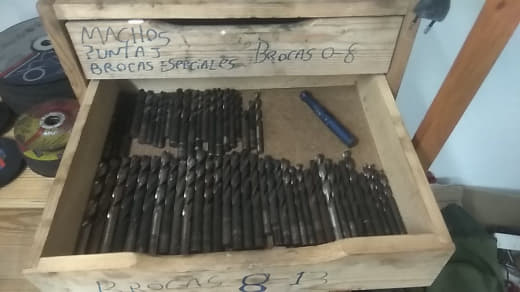 MACHOS
PUNTAS
BROCAS ESPECIALES
BROCAS 0-8
BROCAS 8-13